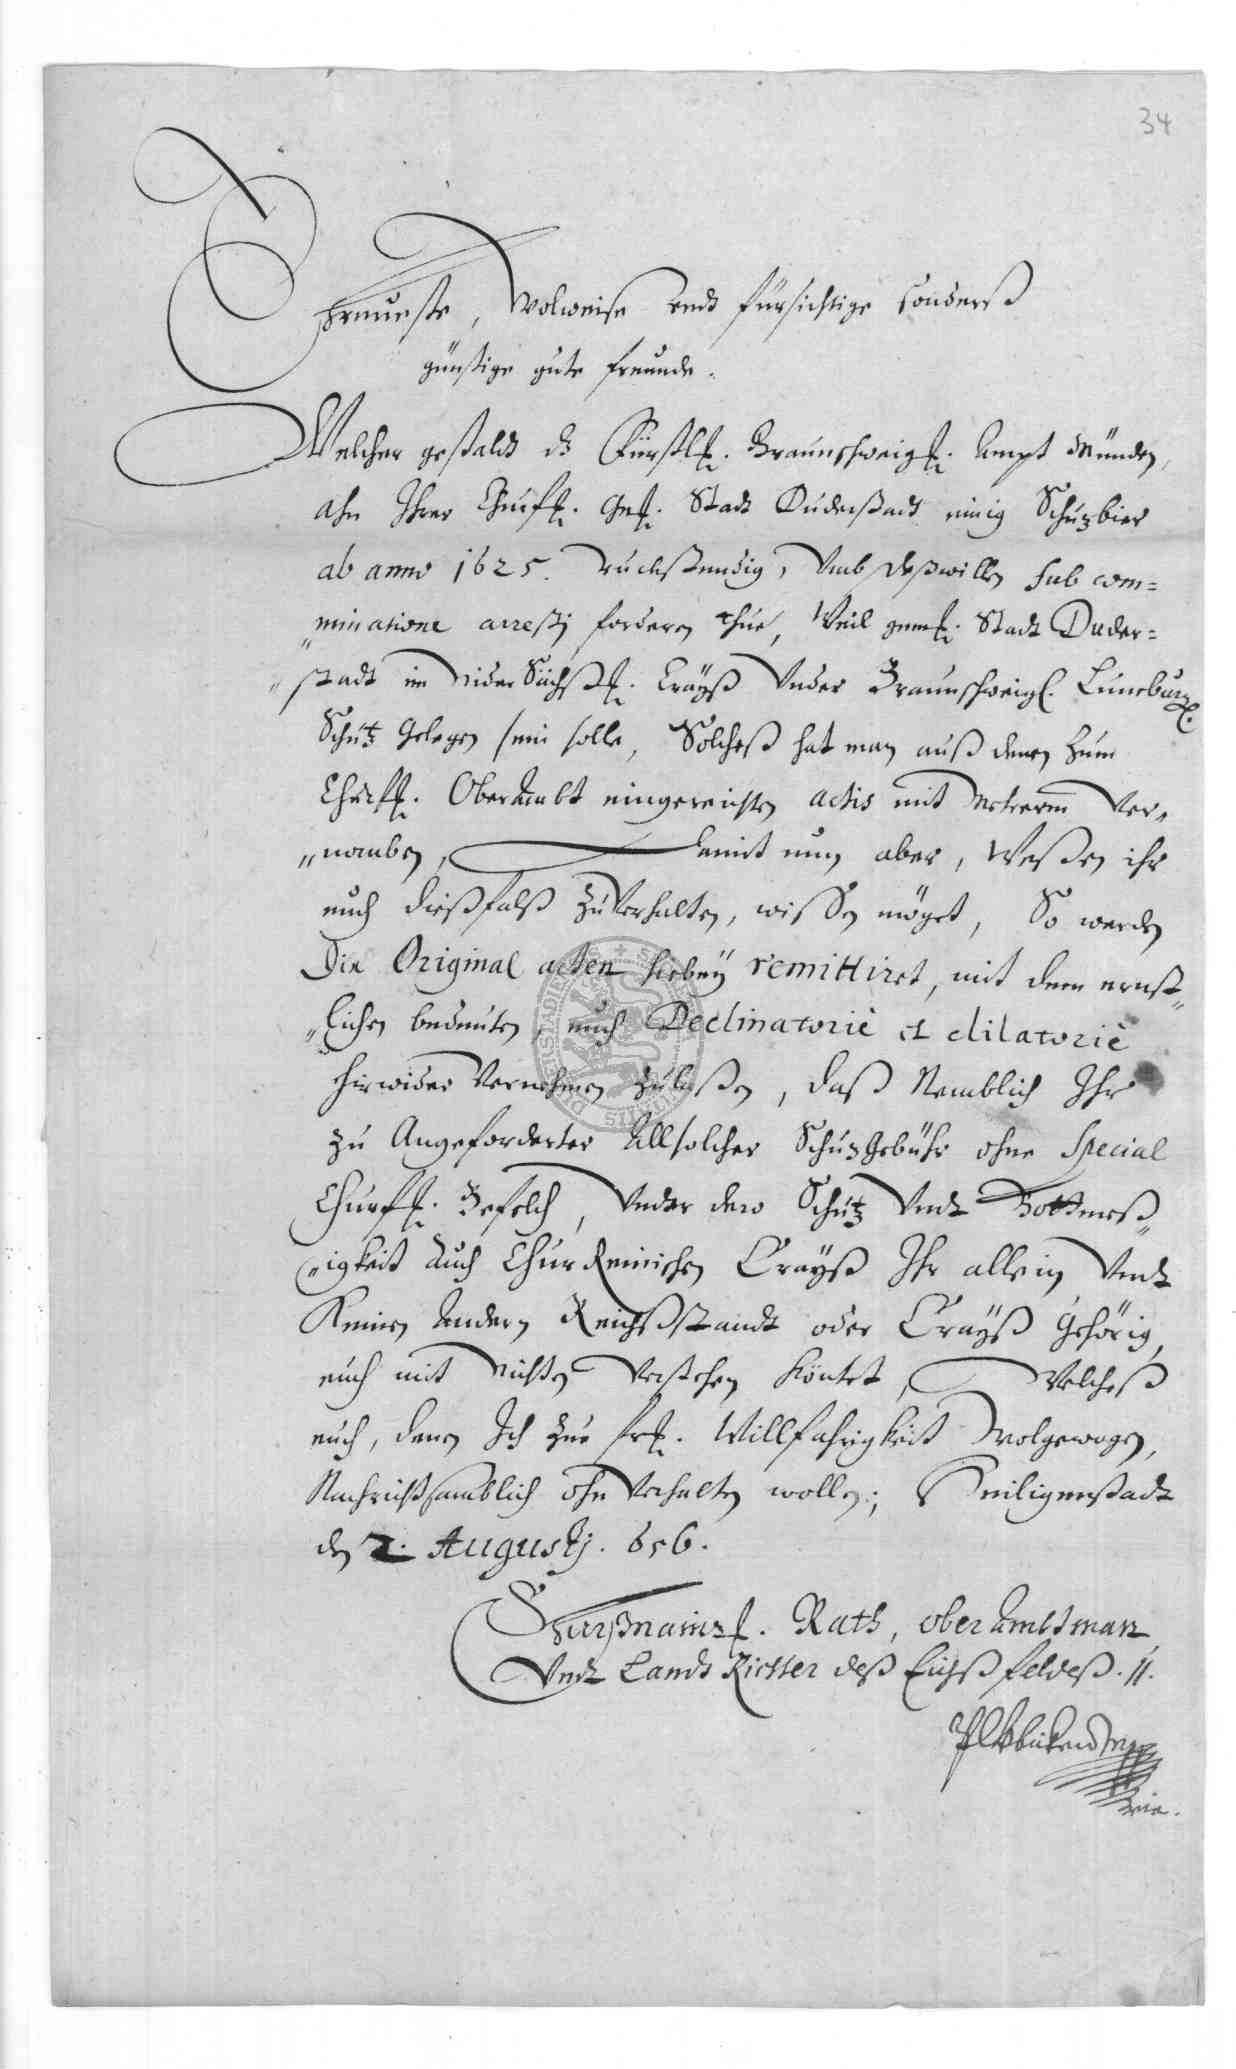 34
Ehrnueste, Wolweise vndt fürsichtige sonderß
günstige gute freunde.
Welcher gestaldt dz Fürstl. Braunschweigl. Ampt Münden,
ahn Ihrer Churfl. Gn. Stadt Duderstadt einig Schutzbier
ab anno 1625. ruckstendig, Vmb deßwillen sub com=
"minatione arrestj forderen thue, Weil gem. Stadt Duder=
"stadt im NiderSächß. Crayß Vnder Braunschweigl. Luneburgl.
Schutz gelegen sein solle, Solcheß hat man auß denen Zum
Churfl. OberAmbt eingereichten actis mit mehrerm Ver,,
"nomben, Damit nun aber, Weßen ihr
euch dießfalß Zu Verhalten, wissen möget, So werden
Die Original acten hiebey remittiret, mit dem ernst,,
"lichen bedeuten, euch Declinatoriè et dilatoriè
hirwider Vernehmen Zulaßen, daß Nemblich Ihr
zu Angeforderter Allsolcher Schutzgebühr ohne Special
Churfl. Befelch, Vnder dero Schutz Vndt Bottmeß,,
"igkeit auch ChurReinischen Crayß Ihr allein Vndt
Keinen Andern Reichßstandt oder Crayß gehörig,
euch mit Nichten Verstehen köntet, Welcheß
euch, denen Ich Zue frl. Willfahrigkeit Wolgewogen,
Nachrichtsamblich ohn Verhalten wollen; Heiligenstadt
den 2. Augustj. 656.
Churmainzl. Rath, ober Ambtman
Vndt Landt Richter deß Eichßfeldeß. //.